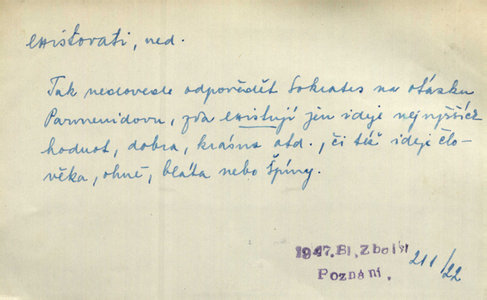 existovati, ned.
Tak nedovede odpověděti Sokrates na otázku
Parmenidovu, zda existují jen ideje nejvyšších
hodnot, dobra, krásna atd., či též ideje člo-
věka, ohně, bláta nebo špíny.
1947. Bl. Zbořil
Poznání.
211/22